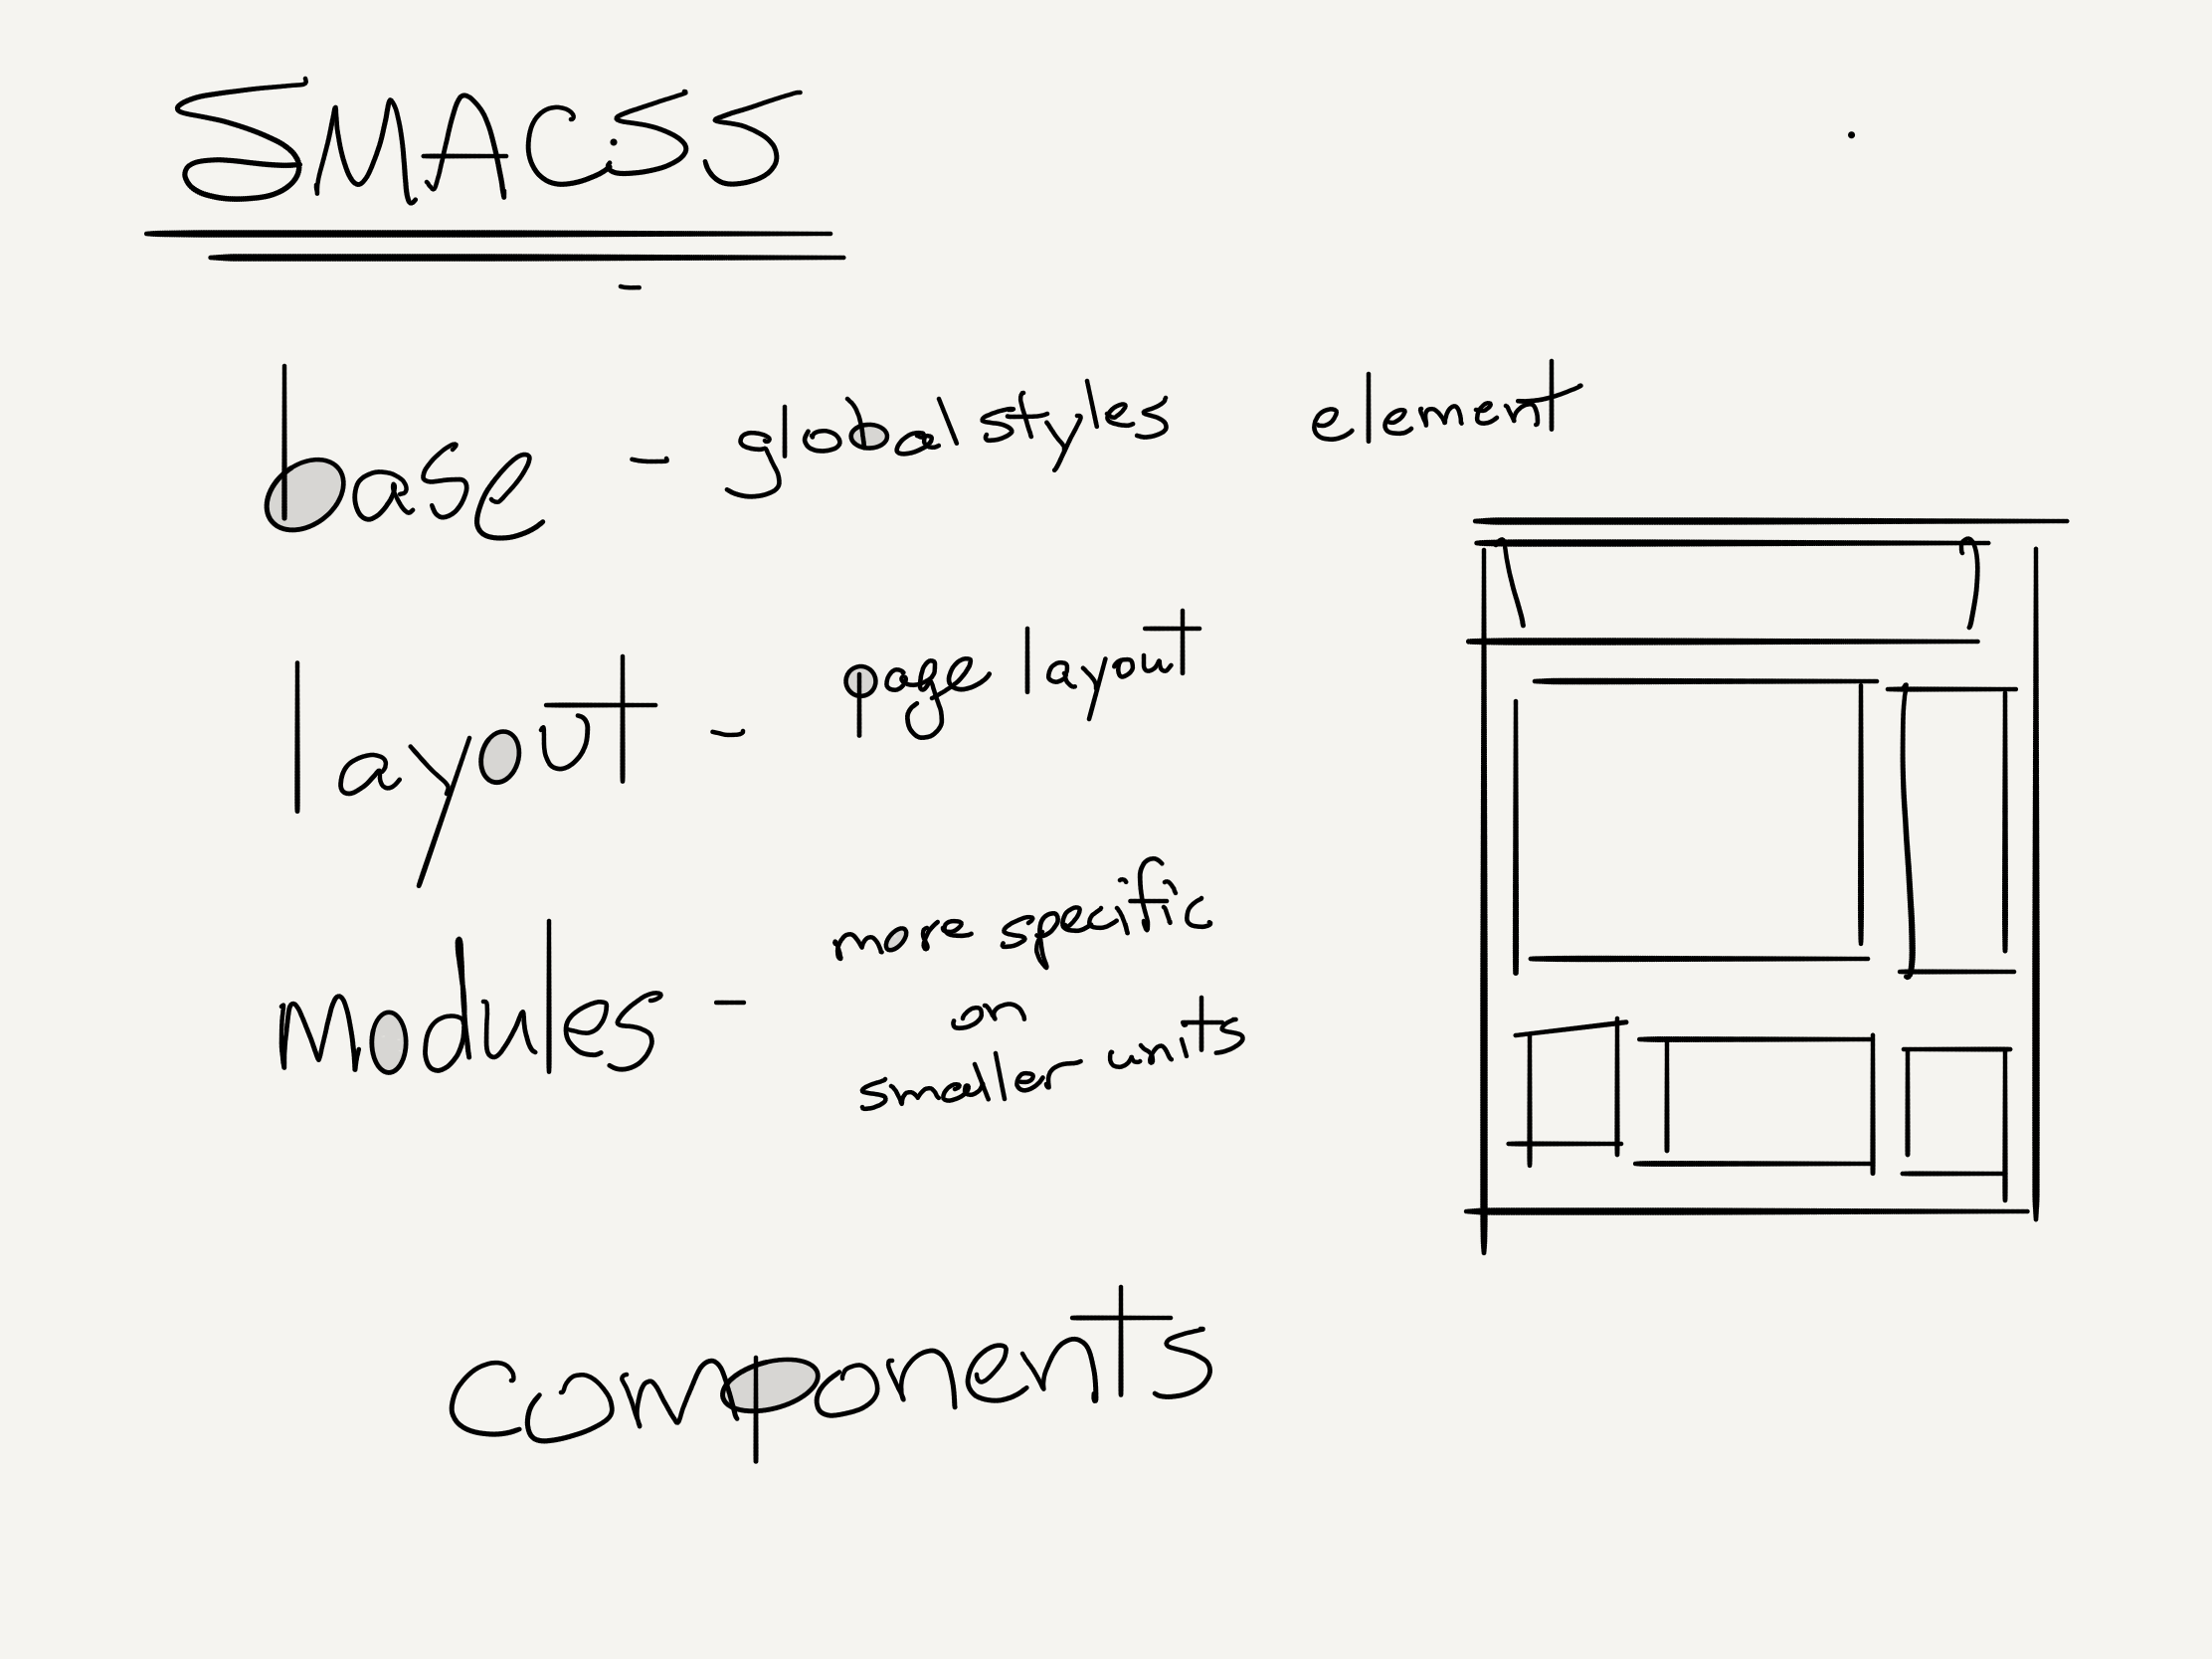 SMACSS
base - global styles element
layout - page layout
modules - more specific
or
smaller units
components